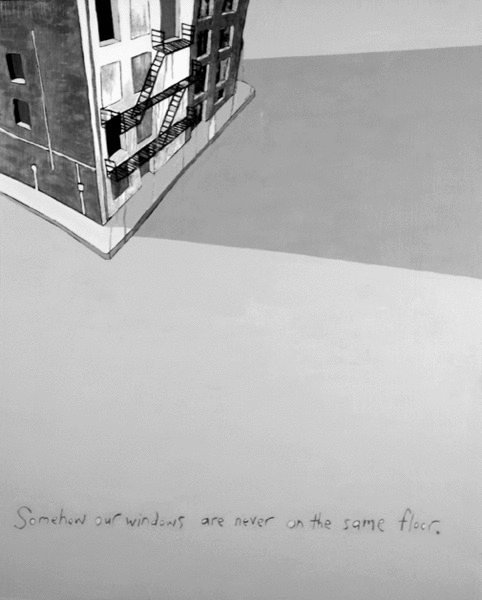 Somehow our windows are never on the same floor.